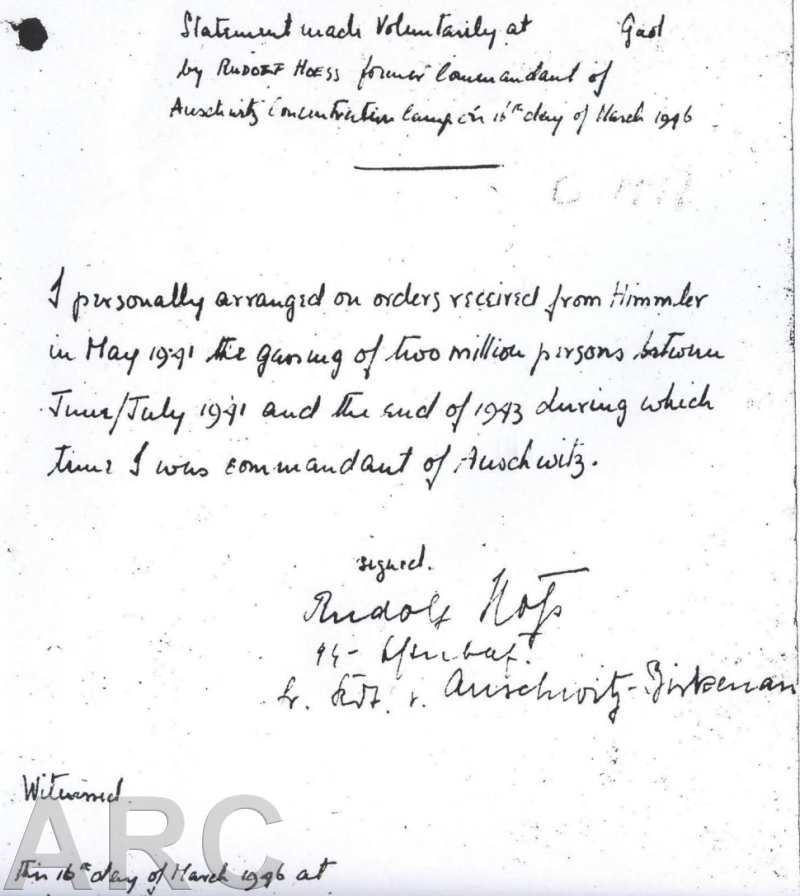 Statement made Voluntarily at Gaol
by RUDOLF HOESS former Commandant of
Auschwitz Concentration Camp on 16th day of March 1946
I personally arranged on orders received from Himmler
in May 1941 the gassing of two million persons between
June/July 1941 and the end of 1943 during which
time I was commandant of Auschwitz.
signed.
Rudolf Höß
Auschwitz-Birkenau
Witnessed
This 16th day of March 1946 at
ARC